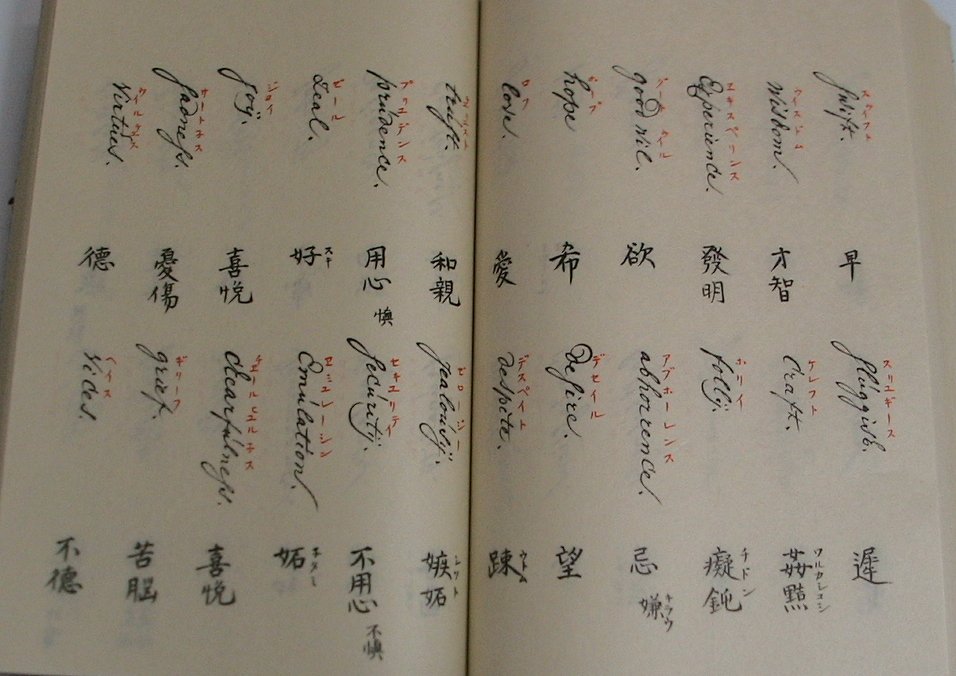 スウイフト
Swift.
早
スリユギース
Sluggish.
遲
ウイスドム
Wisdom.
才智
ケレフト
Craft.
姦黠
ワルカシコシ
エキスペリンス
Experience.
發明
ホリイ
folly.
癡鈍
チドン
グード ウイル
good wil.
欲
アブホーレンス
abhorrence.
忌 嫌
キラウ
ホープ
hope
希
デセイル
Desire.
望
ロフ
love.
愛
デスペイト
despite.
踈
trust.
和親
ゼロシー
jealousy.
嫉妬
シツト
プリュデンス
prudence.
用心 懊
セキユリテイ
security.
不用心 不懊
ゼール
Zeal.
好
スキ
エミュレーシン
Emulation.
妬
ネタミ
ジヨイ
joy.
喜悦
チエールヒユルネス
Chearfulness.
喜悦
サートネス
sadness.
憂傷
ギリーフ
grief.
苦脳
ウイルチユス
Virtues.
德
ヘイス
Vices.
不德